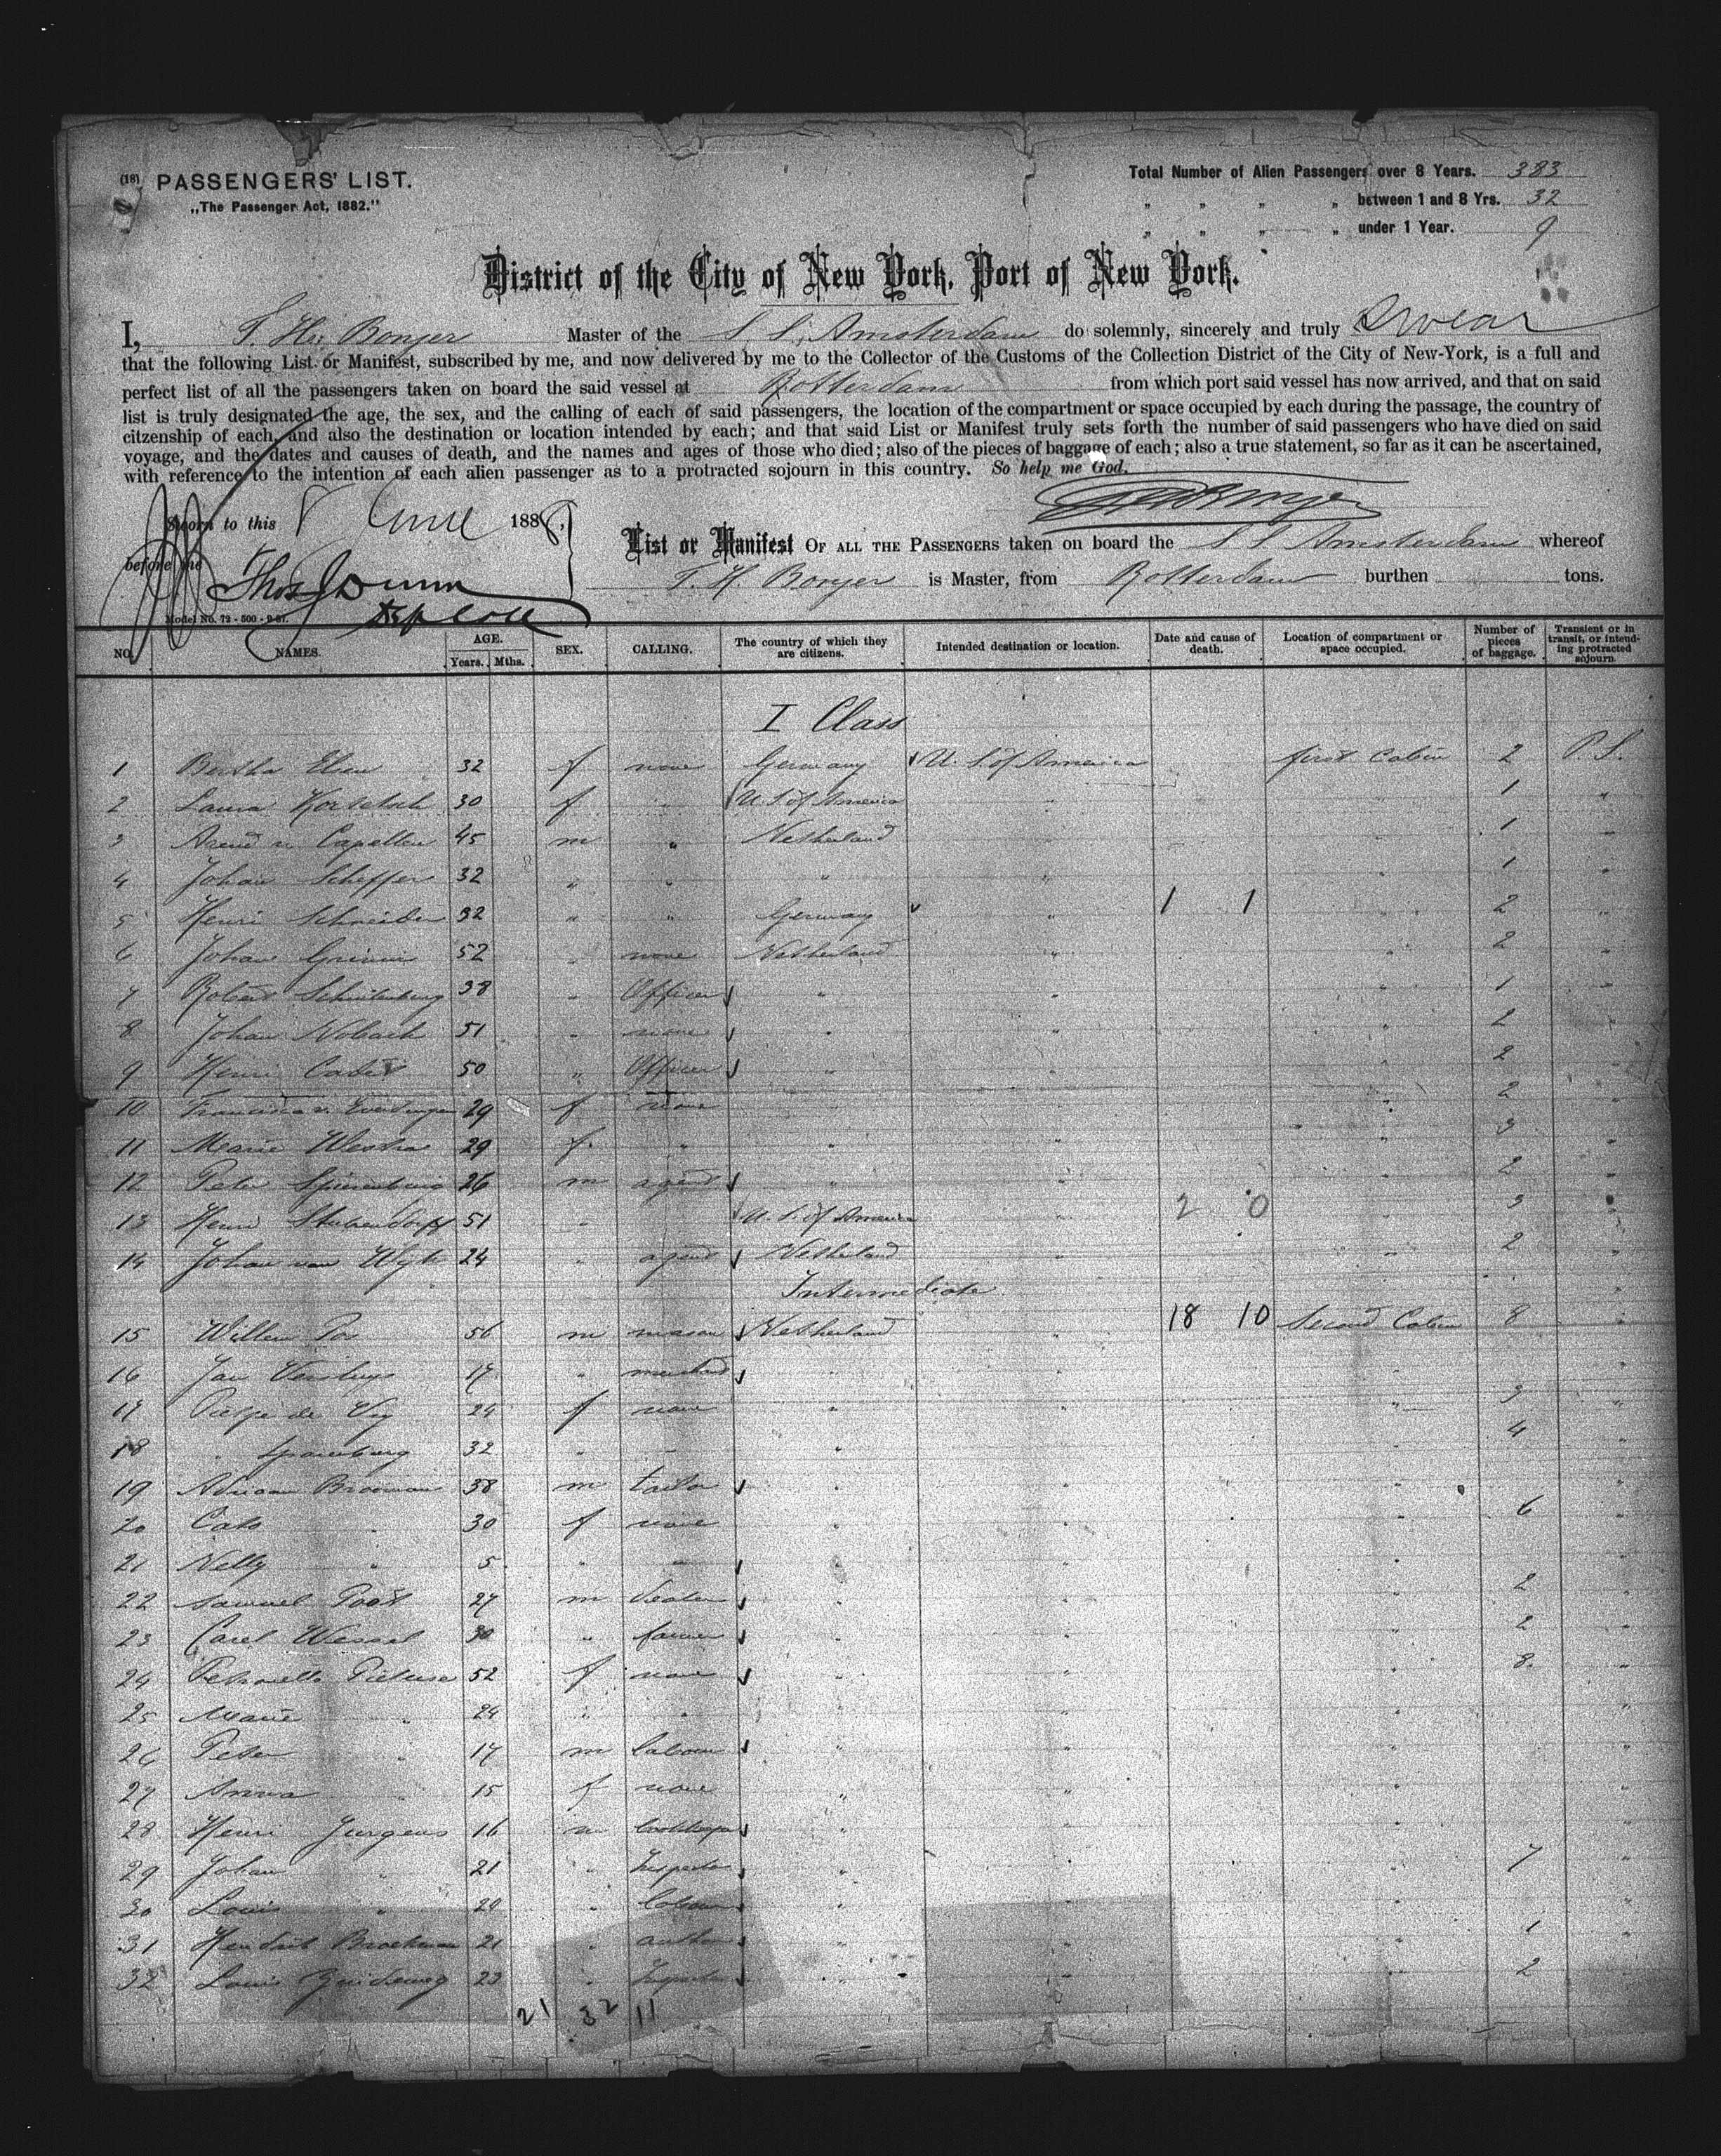 (18) PASSENGERS' LIST.
„The Passenger Act, 1882."
Total Number of Alien Passengers over 8 Years. 383
„ „ „ „ between 1 and 8 Yrs. 32
„ „ „ „ under 1 Year. 9
District of the City of New York, Port of New York.
I, T. H. Bonjer Master of the S. S. Amsterdam do solemnly, sincerely and truly Swear
that the following List or Manifest, subscribed by me, and now delivered by me to the Collector of the Customs of the Collection District of the City of New-York, is a full and
perfect list of all the passengers taken on board the said vessel at Rotterdam from which port said vessel has now arrived, and that on said
list is truly designated the age, the sex, and the calling of each of said passengers, the location of the compartment or space occupied by each during the passage, the country of
citzenship of each, and also the destination or location intended by each; and that said List or Manifest truly sets forth the number of said passengers who have died on said
voyage, and the dates and causes of death, and the names and ages of those who died; also of the pieces of baggage of each; also a true statement, so far as it can be ascertained,
with reference to the intention of each alien passenger as to a protracted sojourn in this country. So help me God.
Sworn to this 8 June 1888,
before me Thos Dunn
List or Manifest OF ALL THE PASSENGERS taken on board the S S Amsterdam whereof
T. H. Bonjer is Master, from Rotterdam burthen tons.
Model No. 72 - 500 - 9-87.
NO. NAMES. AGE. Years. Mths. SEX. CALLING. The country of which they are citizens. Intended destination or location. Date and cause of death. Location of compartment or space occupied. Number of pieces of baggage. Transient or in transit, or intending protracted sojourn.
I Class
1 Bertha 32 f none Germany U. S. of America first Cabin 2 P. S.
2 Laura 30 f " U. S. of America " 1 "
3 Arend v. Capellen 45 m " Netherland 1 "
4 Johan Scheffer 32 " " " " 1 "
5 Henri Schneider 32 " " Germany " 1 1 " 2 "
6 Johan 52 " none Netherland " " 2 "
7 Robert 38 " Officer " " " 1 "
8 Johan Nobach 51 " none " " " 2 "
9 Henri Cadet 50 " Officer " " " 2 "
10 Francisca v. Everdingen 29 f none " 2 "
11 Marie Westra 29 f " " " " 3 "
12 Peter 26 m agent " " " 2 "
13 Henri Stubendorff 51 " U. S. of America " 2 0 " 3
14 Johan van Wyk 24 " agent Netherland " " 2 "
Intermediate
15 Willem 56 m mason Netherland " 18 10 Second Cabin 8 "
16 Jan Versluys 17 " " " " "
17 de 24 f none " " " 3 "
18 " 32 " " " " 4 "
19 Adriaan 38 m tailor " " " "
20 Cato " 30 f none " " " 6 "
21 Nelly " 5 " " " " "
22 Samuel Post 27 m " " " 2 "
23 Carel Wessel 30 " farmer " " " 2 "
24 Petronella Pieterse 52 f none " " " 8 "
25 Marie " 24 " " " " " "
26 Peter " 17 m labour " " " "
27 Anna " 15 f none " " " "
28 Henri Jurgens 16 m " " " "
29 Johan " 21 " Inspector " " " 7 "
30 Louis " 20 " labour " " " "
31 Hendrik Broekman 21 " " " " 1 "
32 Louis 23 " Inspector " " " 2 "
21 32 11